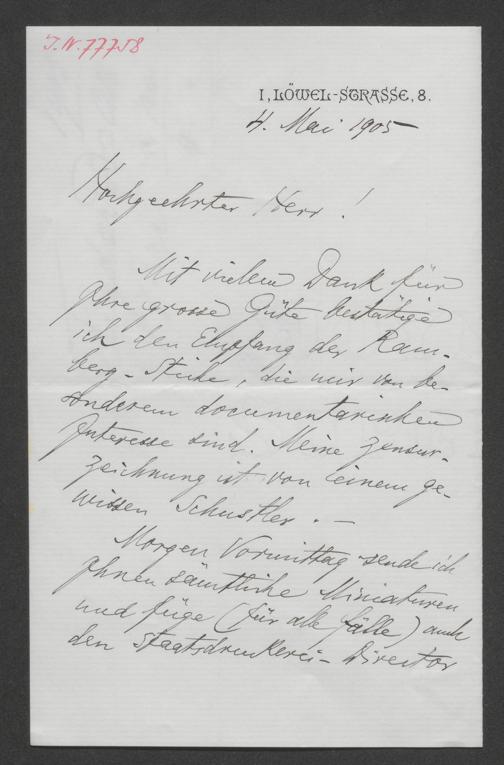 J.N. 77758
I, LÖWEL-STRASSE, 8.
4. Mai 1905
Hochgeehrter Herr!
Mit vielem Dank für
Ihre grosse Güte bestätige
ich den Empfang der Ram-
berg-Stiche, die mir von be-
sonderem documentarischen
Interesse sind. Meine Zensur-
zeichnung ist von einem ge-
wissen Schustler. –
Morgen Vormittag sende ich
Ihnen sämtliche Miniaturen
und füge (für alle Fälle) auch
den Staatsdruckerei-Director